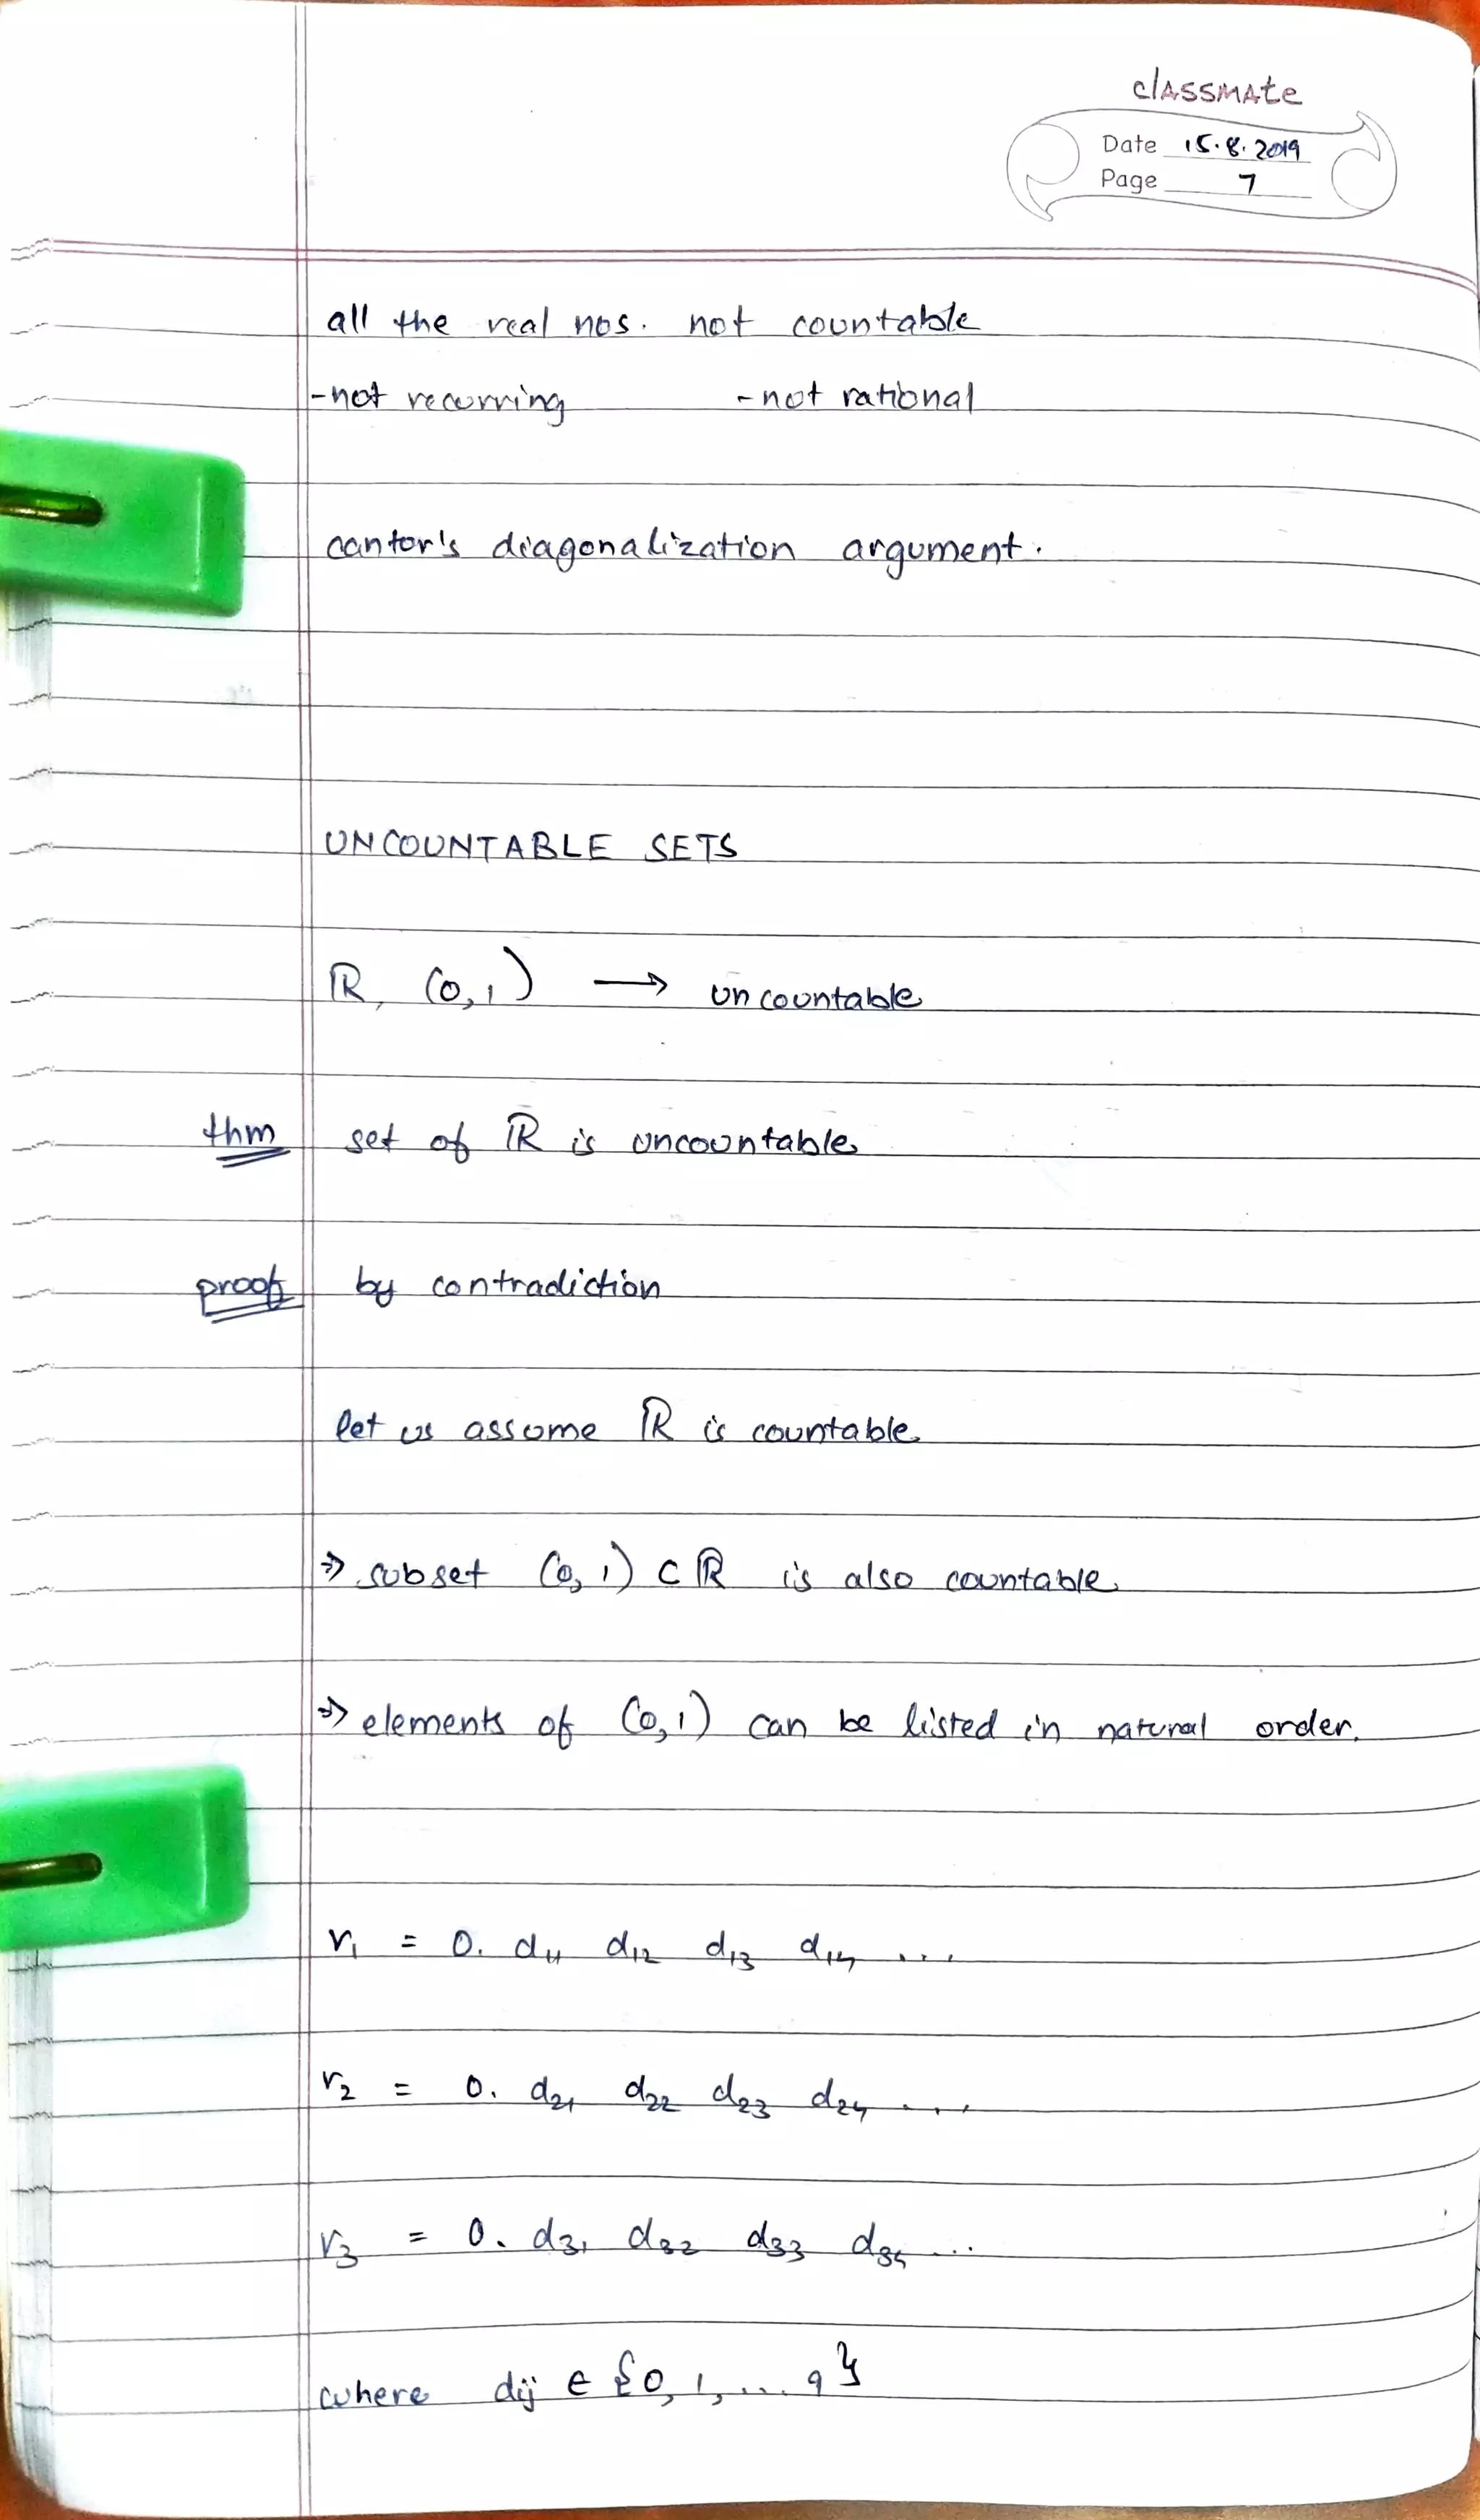 classmate
Date 15.8.2019
Page 7
all the real nos. not countable
-not recurring -not rational
cantor's diagonalization argument.
UNCOUNTABLE SETS
ℝ, (0,1) → uncountable
thm set of ℝ is uncountable
proof by contradiction
let us assume ℝ is countable
⇒ subset (0,1) ⊂ ℝ is also countable
⇒ elements of (0,1) can be listed in natural order.
r₁ = 0. d₁₁ d₁₂ d₁₃ d₁₄ ....
r₂ = 0. d₂₁ d₂₂ d₂₃ d₂₄ ....
r₃ = 0. d₃₁ d₃₂ d₃₃ d₃₄ ...
where dij ∈ {0, 1, ... 9}